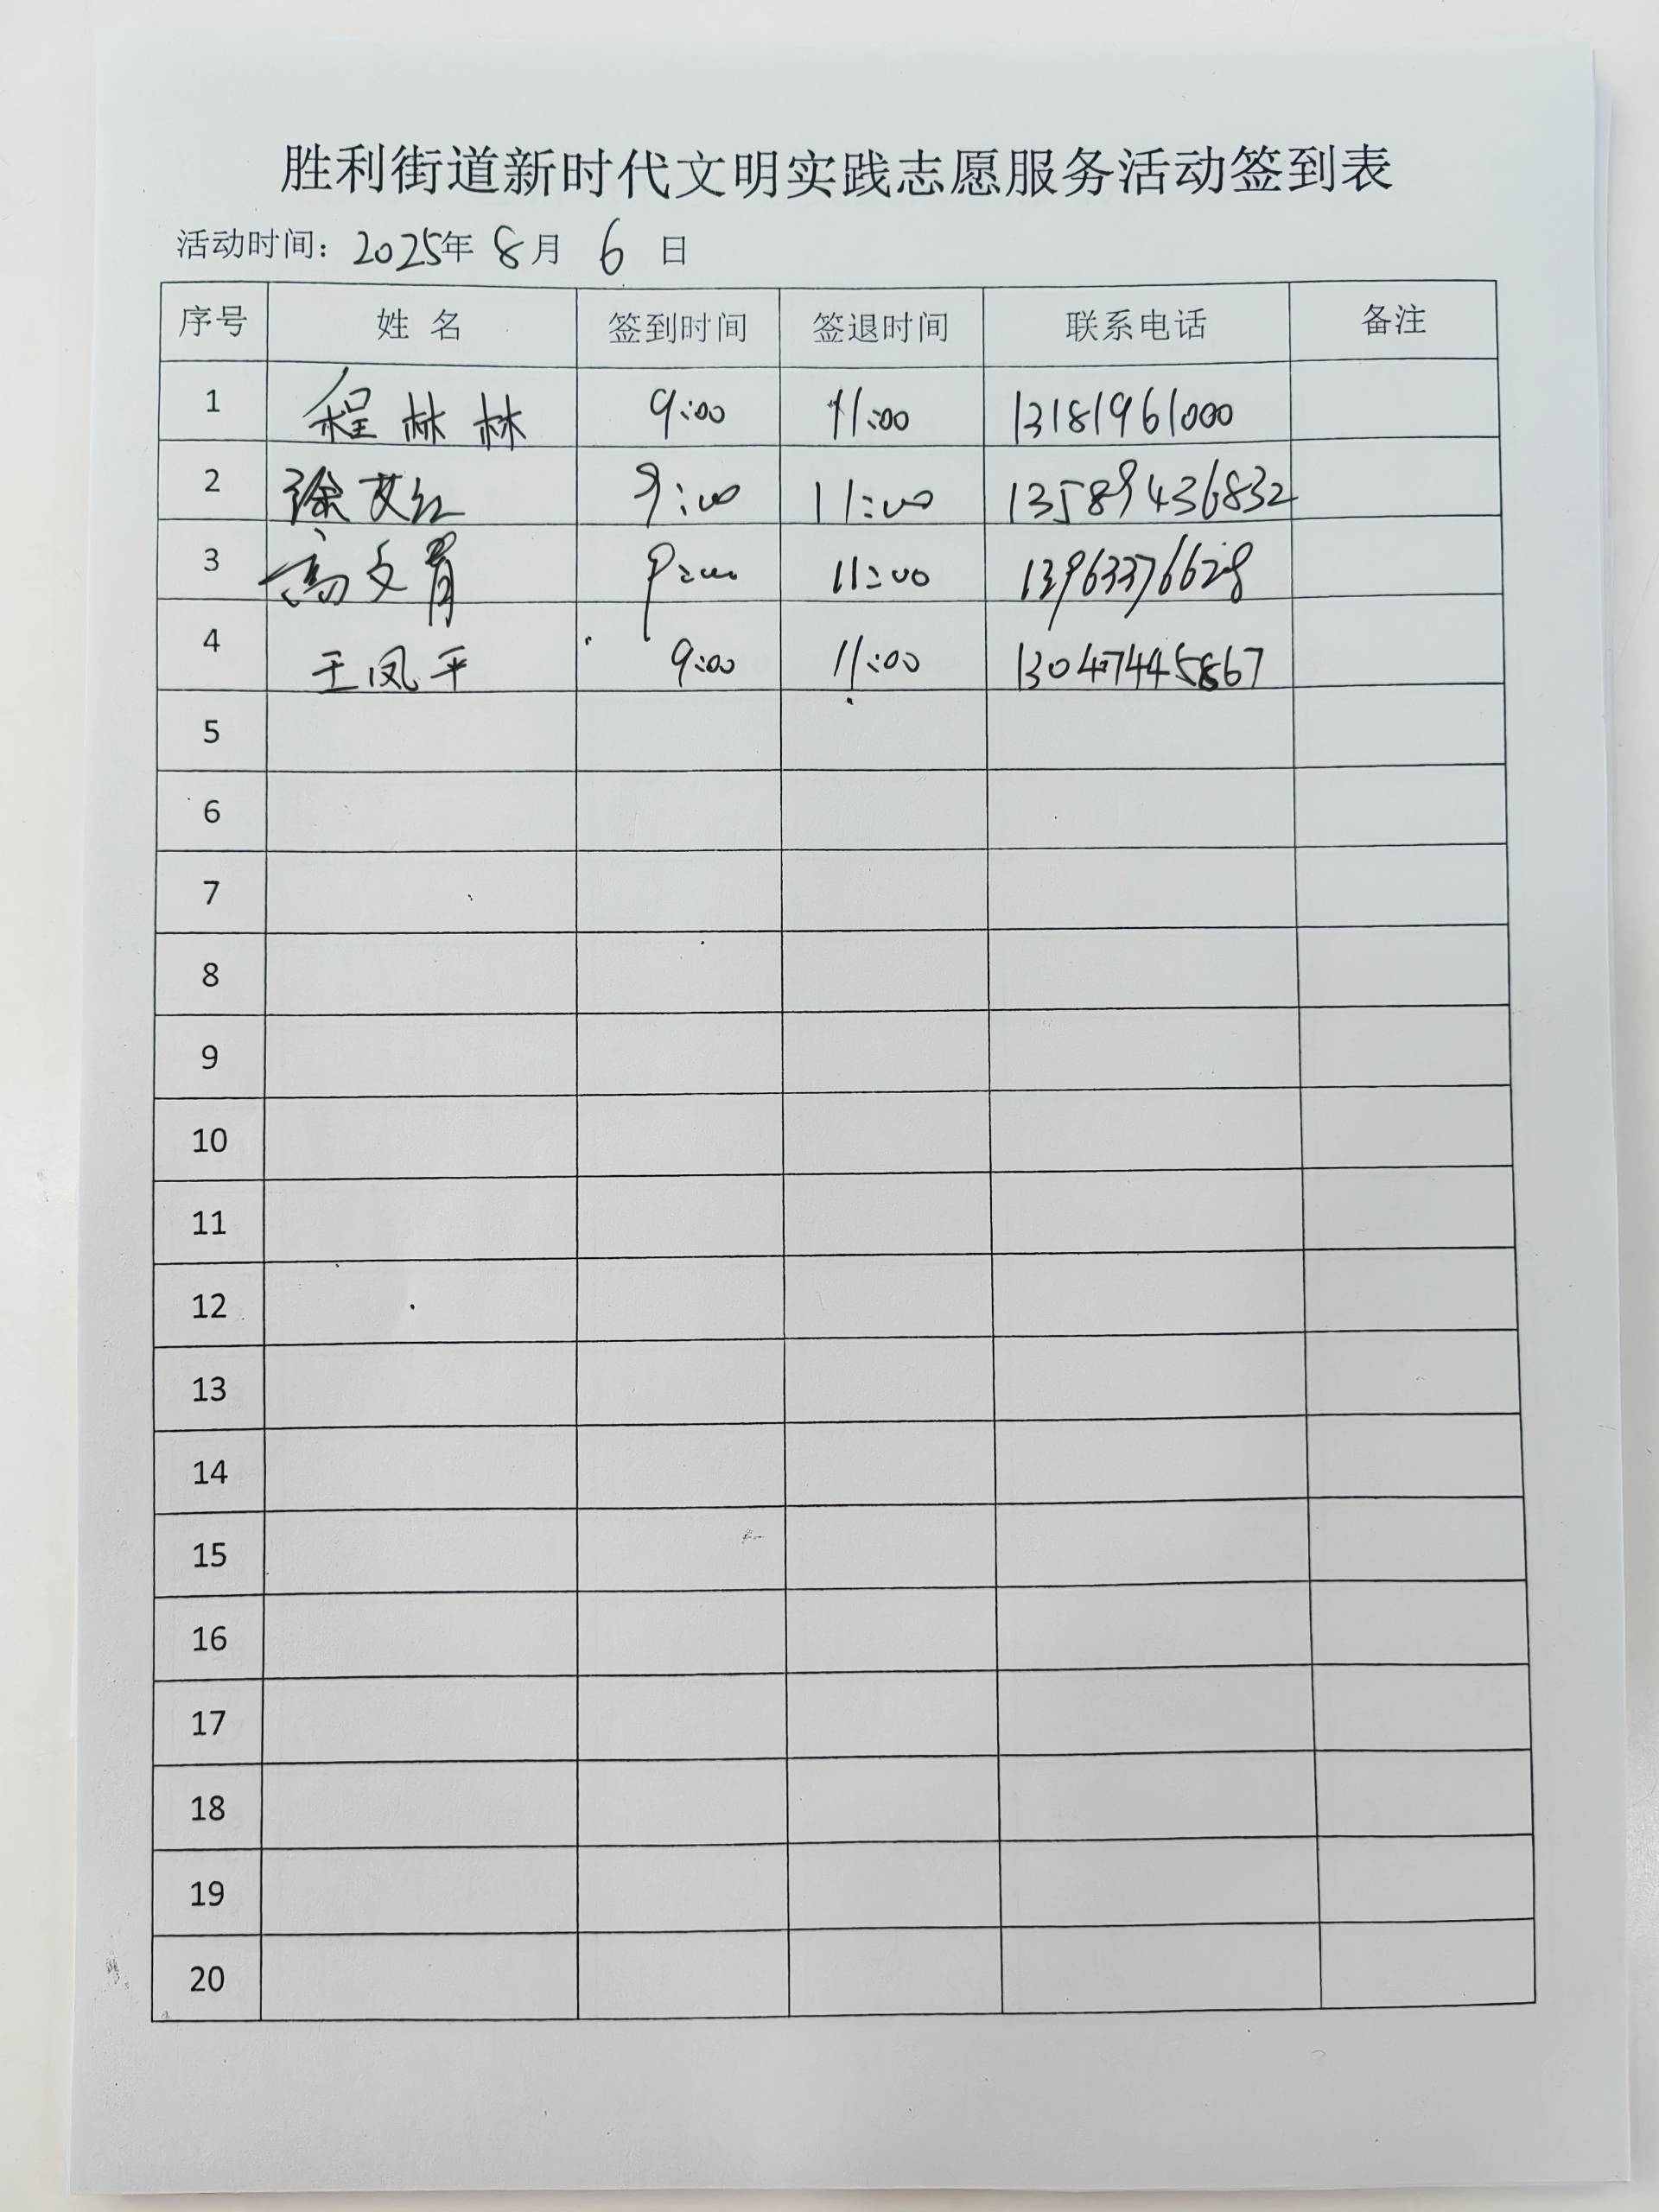 胜利街道新时代文明实践志愿服务活动签到表
活动时间：2025年 8月 6 日
序号 姓 名 签到时间 签退时间 联系电话 备注
1 程林林 9:00 11:00 13181961000
2 徐艾红 9:00 11:00 13589436832
3 高文胥 9:00 11:00 13963376628
4 王凤平 9:00 11:00 13047445867
5
6
7
8
9
10
11
12
13
14
15
16
17
18
19
20